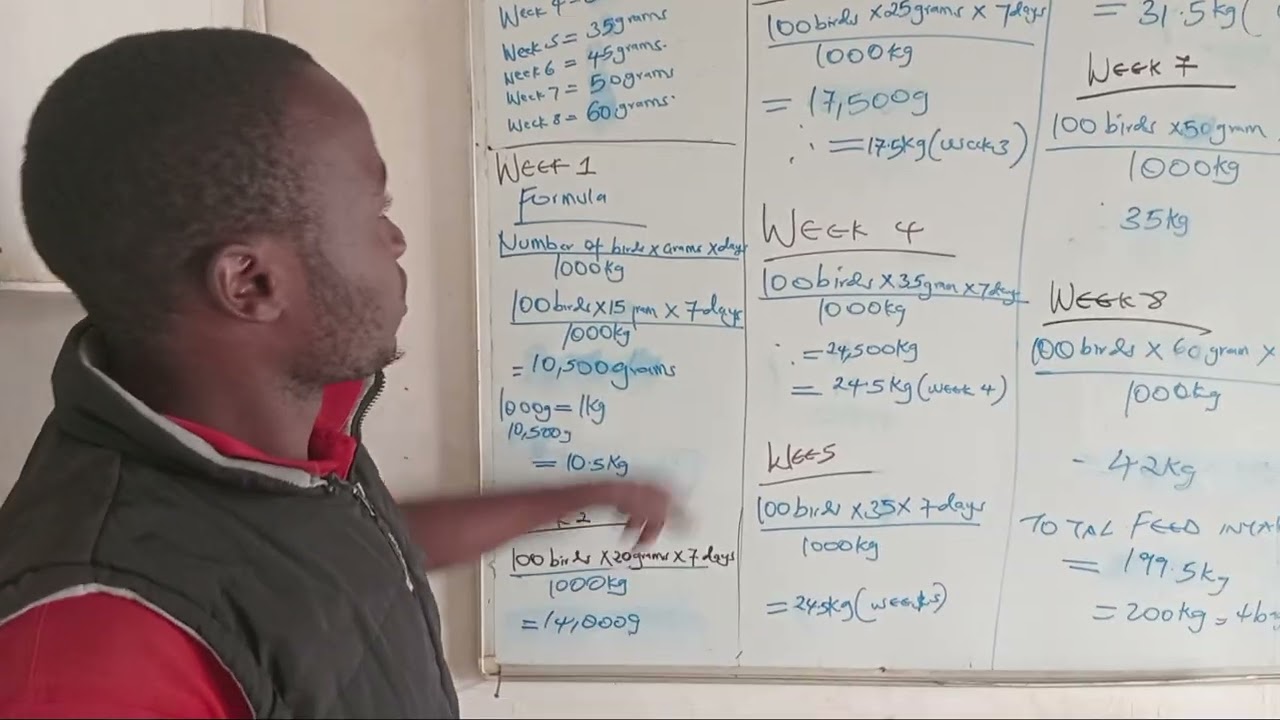 Week 4 =
Week 5 = 35grams
Week 6 = 45grams.
Week 7 = 50grams
Week 8 = 60grams.
WEEK 1
Formula
Number of birds x Grams x days
1000kg
100birds x 15 gram x 7days
1000kg
= 10,500grams
1000g = 1kg
10,500g
= 10.5kg
k 2
100 birds x 20grams x 7days
1000kg
= 14,000g
100birds x 25grams x 7days
1000kg
= 17,500g
∴ = 17.5kg (week3)
WEEK 4
100birds x 35gram x 7days
1000kg
∴ = 24,500kg
= 24.5kg (week 4)
WEE5
100birds x 35 x 7days
1000kg
= 24.5kg (week5)
= 31.5kg (
WEEK 7
100 birds x 50gram
1000kg
35kg
WEEK 8
100 birds x 60 gram x
1000kg
- 42kg
TOTAL FEED INTA
= 199.5kg
= 200kg = 4b